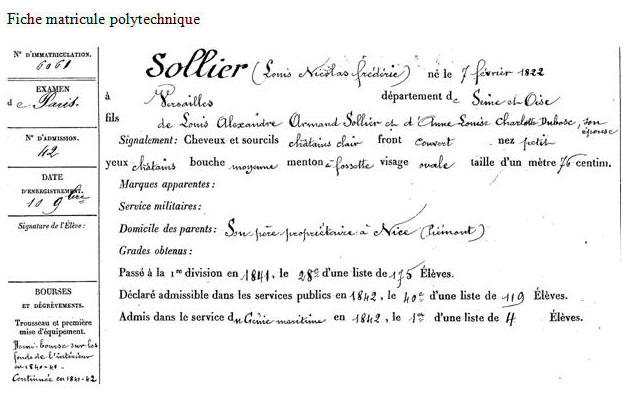 Fiche matricule polytechnique
N° D'IMMATRICULATION.
6061
EXAMEN
de Paris.
N° D'ADMISSION.
42
DATE
D'ENREGISTREMENT.
10 9bre
Signature de l'Élève :
BOURSES
ET DÉGRÈVEMENTS.
Trousseau et première
mise d'équipement.
Demi-bourse sur les
fonds de l'intérieur
en 1840-41.
Continuée en 1841-42
Sollier (Louis Nicolas Frédéric) né le 7 février 1822
à Versailles département de Seine et Oise
fils de Louis Alexandre Armand Sollier et d'Anne Louise Charlotte Dubosc, son
épouse
Signalement: Cheveux et sourcils châtains clair front couvert nez petit
yeux châtains bouche moyenne menton à fossette visage ovale taille d'un mètre 76 centim.
Marques apparentes :
Service militaires :
Domicile des parents: Son père propriétaire à Nice (Piémont)
Grades obtenus :
Passé à la 1re division en 1841, le 28e d'une liste de 175 Élèves.
Déclaré admissible dans les services publics en 1842, le 40e d'une liste de 119 Élèves.
Admis dans le service du Génie maritime en 1842, le 1er d'une liste de 4 Élèves.